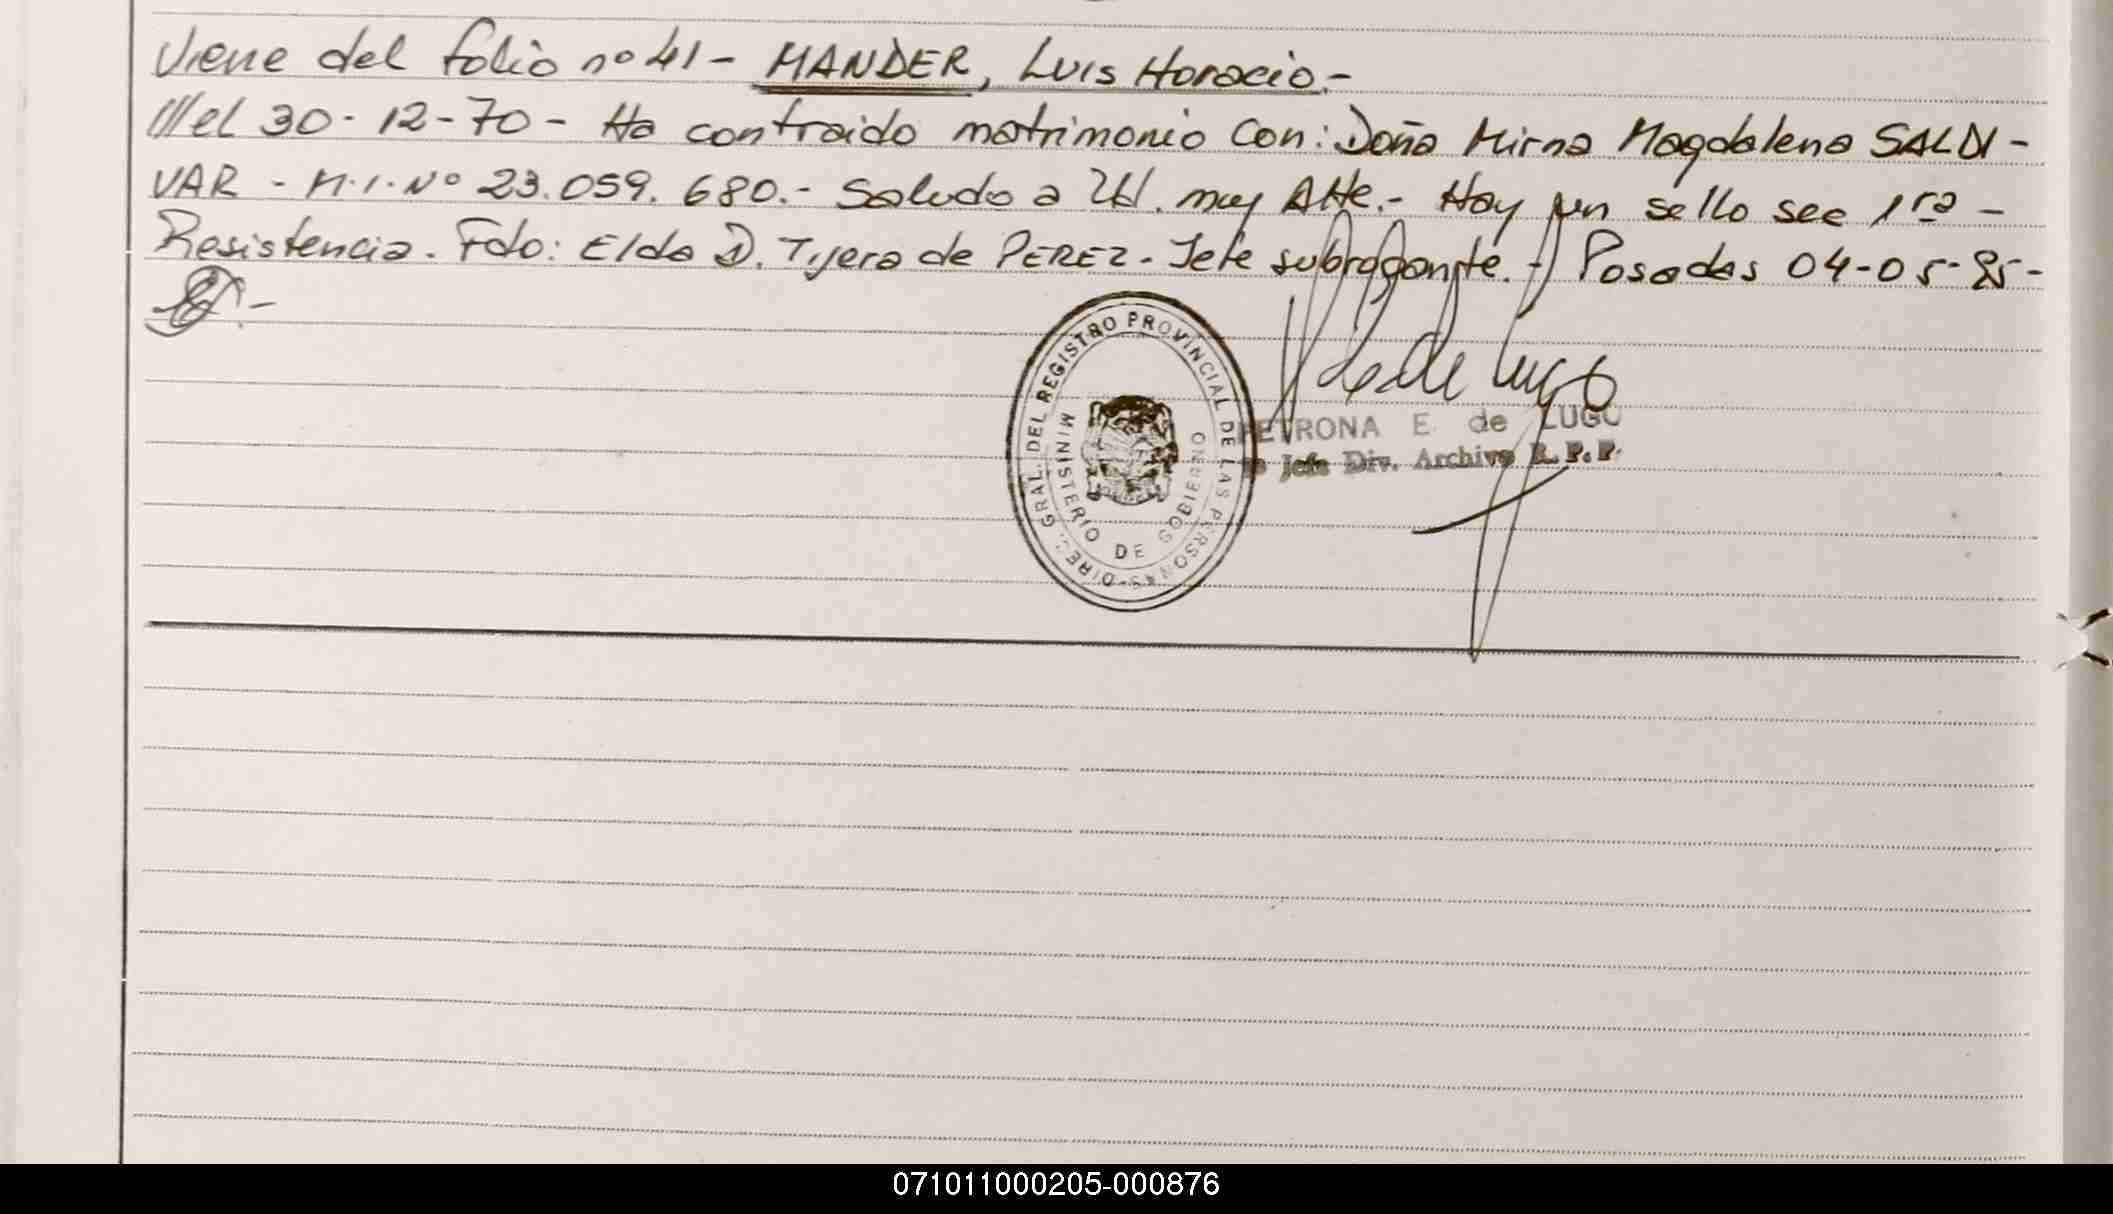 Viene del folio nº 41 - MANDER, Luis Horacio.-
///el 30-12-70 - Ha contraido matrimonio con: Doña Mirna Magdalena SALDI-
VAR - M.I. Nº 23.059.680.- Saludo a Ud. muy Atte.- Hay un sello sec 1ra -
Resistencia. Fdo: Elda D. Tijera de PEREZ - Jefe subrogante.- Posadas 04-05-85-
DIREC. GRAL. DEL REGISTRO PROVINCIAL DE LAS PERSONAS
MINISTERIO DE GOBIERNO
PETRONA E. de LUGO
Jefe Div. Archivo R.P.P.
071011000205-000876